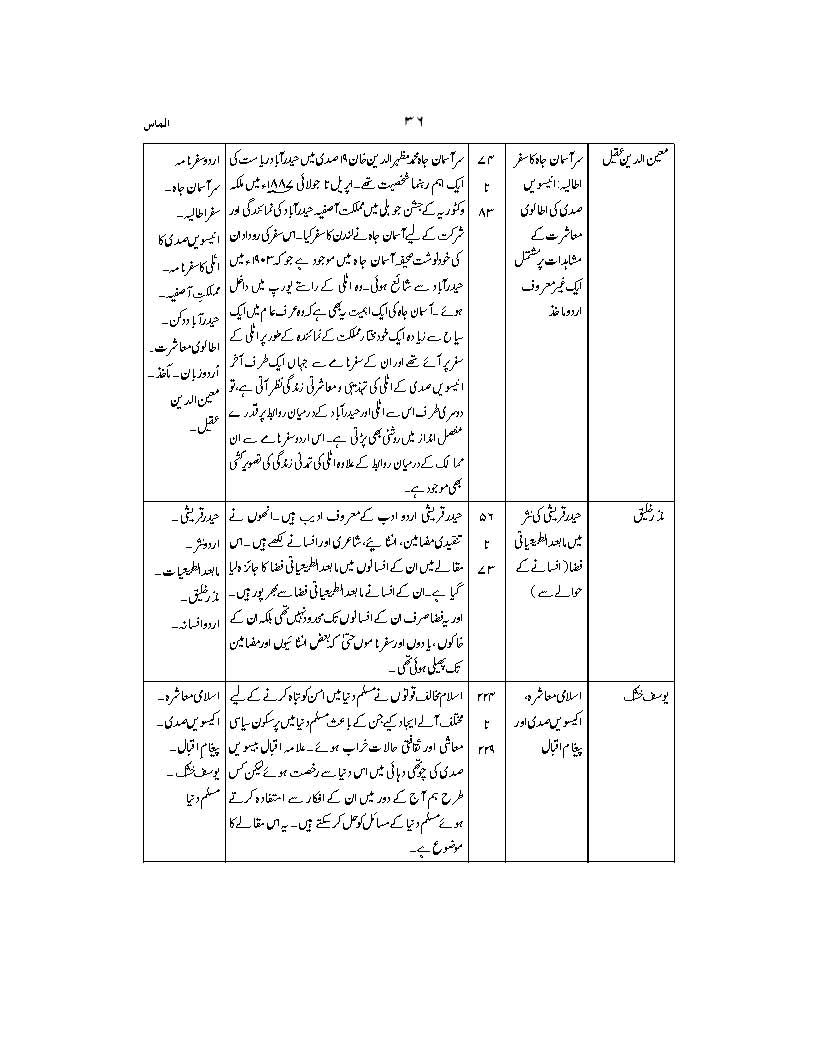 ۳۶
الماس
معین الدین عقیل
سرآسمان جاہ کا سفر
اطالیہ: انیسویں
صدی کی اطالوی
معاشرت کے
مشاہدات پر مشتمل
ایک غیر معروف
اردو ماخذ
۷۴
تا
۸۳
سرآسمان جاہ محمد مظہر الدین خان ۱۹ صدی میں حیدرآباد ریاست کی
ایک اہم رہنما شخصیت تھے۔ اپریل تا جولائی ۱۸۸۷ء میں ملکہ
وکٹوریہ کے جشن جوبلی میں مملکت آصفیہ حیدرآباد کی نمائندگی اور
شرکت کے لیے آسمان جاہ نے لندن کا سفر کیا۔ اس سفر کی روداد ان
کی خودنوشت صحیفہ آسمان جاہ میں موجود ہے جو کہ ۱۹۰۳ء میں
حیدرآباد سے شائع ہوئی۔ وہ اٹلی کے راستے یورپ میں داخل
ہوئے۔ آسمان جاہ کی ایک اہمیت یہ بھی ہے کہ وہ عرف عام میں ایک
سیاح سے زیادہ ایک خودمختار مملکت کے نمائندہ کے طور پر اٹلی کے
سفر پر آئے تھے اور ان کے سفرنامے سے جہاں ایک طرف آخر
انیسویں صدی کے اٹلی کی تہذیبی و معاشرتی زندگی نظر آتی ہے، تو
دوسری طرف اس سے اٹلی اور حیدرآباد کے درمیان روابط پر قدرے
مفصل انداز میں روشنی بھی پڑتی ہے۔ اس اردو سفرنامے سے ان
ممالک کے درمیان روابط کے علاوہ اٹلی کی تمدنی زندگی کی تصویر کشی
بھی موجود ہے۔
اردو سفرنامہ
سرآسمان جاہ۔
سفر اطالیہ۔
انیسویں صدی کا
اٹلی کا سفرنامہ۔
مملکت آصفیہ۔
حیدرآباد دکن۔
اطالوی معاشرت۔
اُردو زبان۔ مآخذ۔
معین الدین
عقیل۔
نذر خلیق
حیدر قریشی کی نثر
میں مابعد الطبیعیاتی
فضا (افسانے کے
حوالے سے)
۵۶
تا
۷۳
حیدر قریشی اردو ادب کے معروف ادیب ہیں۔ انھوں نے
تنقیدی مضامین، انشائیے، شاعری اور افسانے لکھے ہیں۔ اس
مقالے میں ان کے افسانوں میں مابعد الطبیعیاتی فضا کا جائزہ لیا
گیا ہے۔ ان کے افسانے مابعد الطبیعیاتی فضا سے بھرپور ہیں۔
اور یہ فضا صرف ان کے افسانوں تک محدود نہیں تھی بلکہ ان کے
خاکوں، یادوں اور سفرناموں حتیٰ کہ بعض انشائیوں اور مضامین
تک پھیلی ہوئی تھی۔
حیدر قریشی۔
اردو نثر۔
مابعد الطبیعیات۔
نذر خلیق۔
اردو افسانہ۔
یوسف خشک
اسلامی معاشرہ،
اکیسویں صدی اور
پیغام اقبال
۲۲۴
تا
۲۲۹
اسلام مخالف قوتوں نے مسلم دنیا میں امن کو تباہ کرنے کے لیے
مختلف آلے ایجاد کیے جن کے باعث مسلم دنیا میں پرسکون سیاسی
معاشی اور ثقافتی حالات خراب ہوئے۔ علامہ اقبال بیسویں
صدی کی چوتھی دہائی میں اس دنیا سے رخصت ہوئے لیکن کس
طرح ہم آج کے دور میں ان کے افکار سے استفادہ کرتے
ہوئے مسلم دنیا کے مسائل کو حل کر سکتے ہیں۔ یہ اس مقالے کا
موضوع ہے۔
اسلامی معاشرہ۔
اکیسویں صدی۔
پیغام اقبال۔
یوسف خشک۔
مسلم دنیا